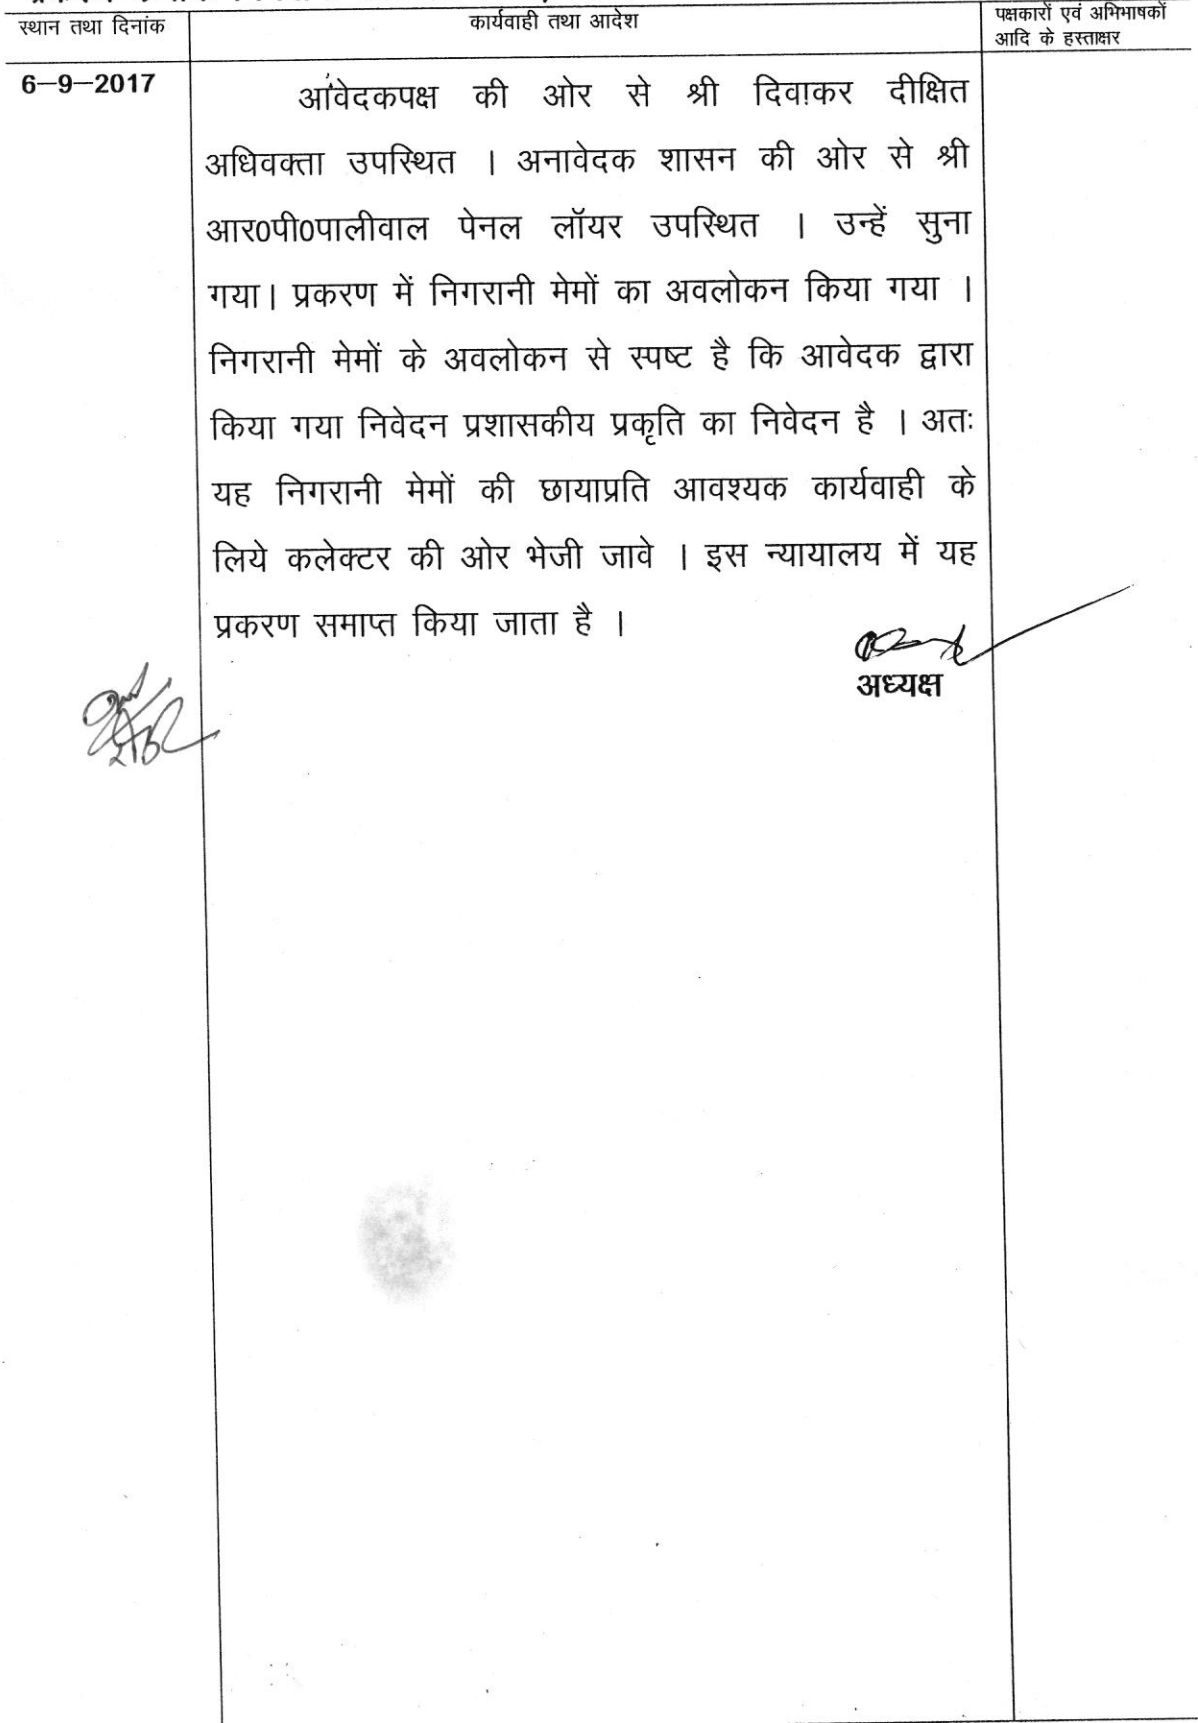 स्थान तथा दिनांक
कार्यवाही तथा आदेश
पक्षकारों एवं अभिभाषकों
आदि के हस्ताक्षर
6–9–2017
आवेदकपक्ष की ओर से श्री दिवाकर दीक्षित
अधिवक्ता उपस्थित । अनावेदक शासन की ओर से श्री
आर0पी0पालीवाल पेनल लॉयर उपस्थित । उन्हें सुना
गया। प्रकरण में निगरानी मेमों का अवलोकन किया गया ।
निगरानी मेमों के अवलोकन से स्पष्ट है कि आवेदक द्वारा
किया गया निवेदन प्रशासकीय प्रकृति का निवेदन है । अतः
यह निगरानी मेमों की छायाप्रति आवश्यक कार्यवाही के
लिये कलेक्टर की ओर भेजी जावे । इस न्यायालय में यह
प्रकरण समाप्त किया जाता है ।
अध्यक्ष